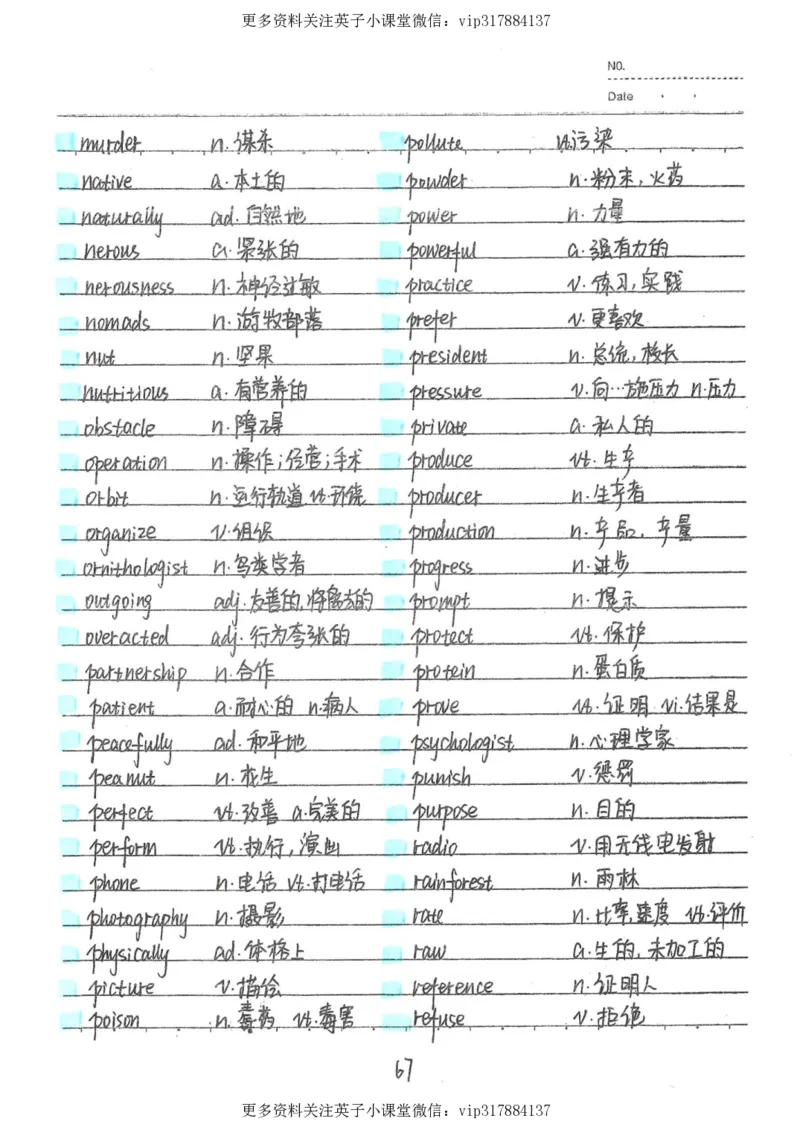 更多资料关注英子小课堂微信：vip317884137
NO.
Date
murder n. 谋杀
native a. 本土的
naturally ad. 自然地
nerous a. 紧张的
nerousness n. 神经过敏
nomads n. 游牧部落
nut n. 坚果
nutritious a. 有营养的
obstacle n. 障碍
operation n. 操作；经营；手术
orbit n. 运行轨道 vt. 环绕
organize v. 组织
ornithologist n. 鸟类学者
outgoing adj. 友善的，将离去的
overacted adj. 行为夸张的
partnership n. 合作
patient a. 耐心的 n. 病人
peacefully ad. 和平地
peanut n. 花生
perfect vt. 改善 a. 完美的
perform vt. 执行，演出
phone n. 电话 vt. 打电话
photography n. 摄影
physically ad. 体格上
picture v. 描绘
poison n. 毒药 vt. 毒害
pollute vt. 污染
powder n. 粉末，火药
power n. 力量
powerful a. 强有力的
practice v. 练习，实践
prefer v. 更喜欢
president n. 总统，校长
pressure v. 向…施压力 n. 压力
private a. 私人的
produce vt. 生产
producer n. 生产者
production n. 产品，产量
progress n. 进步
prompt n. 提示
protect vt. 保护
protein n. 蛋白质
prove vt. 证明 vi. 结果是
psychologist n. 心理学家
punish v. 惩罚
purpose n. 目的
radio v. 用无线电发射
rainforest n. 雨林
rate n. 比率，速度 vt. 评价
raw a. 生的，未加工的
reference n. 证明人
refuse v. 拒绝
67
更多资料关注英子小课堂微信：vip317884137